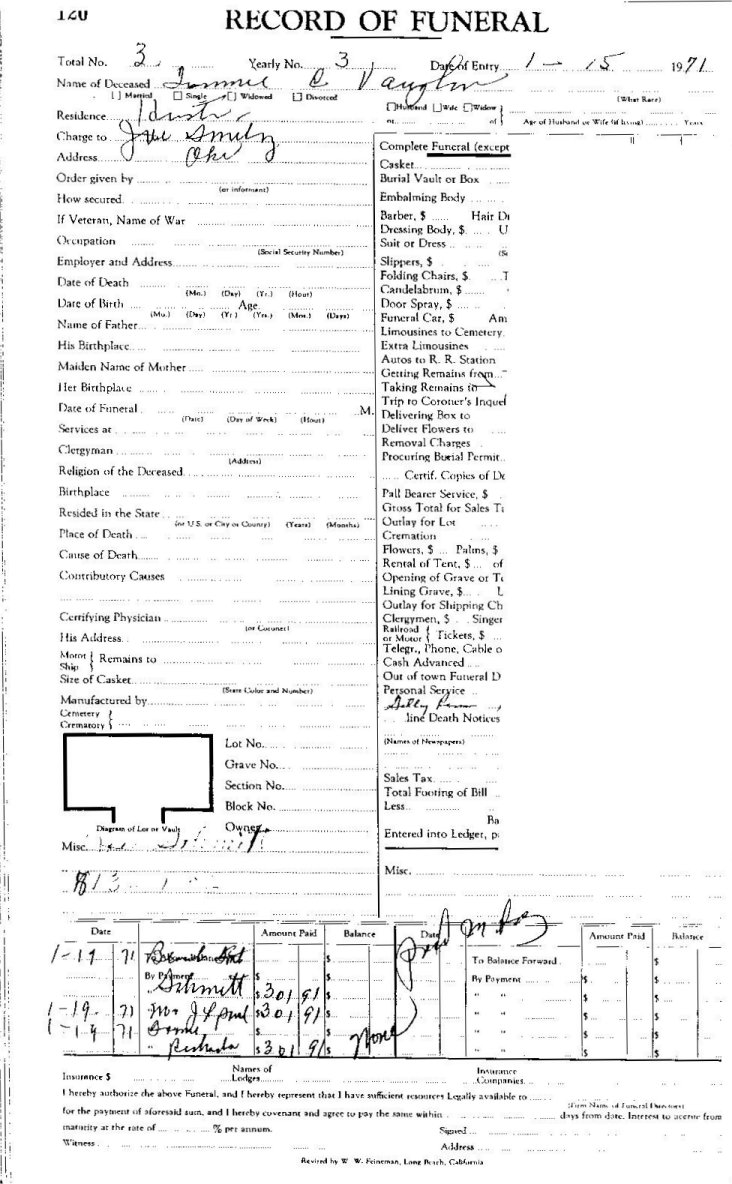 120
RECORD OF FUNERAL
Total No. 3 Yearly No. 3 Date of Entry 1 - 15 1971
Name of Deceased C Vaughn
[ ] Married [ ] Single [ ] Widowed [ ] Divorced
(What Race)
[ ] Husband [ ] Wife [ ] Widow }
or of } Age of Husband or Wife (if living) Years
Residence
Charge to
Address
Order given by
(or informant)
How secured
If Veteran, Name of War
Occupation
(Social Security Number)
Employer and Address
Date of Death
(Mo.) (Day) (Yr.) (Hour)
Date of Birth Age
(Mo.) (Day) (Yr.) (Yrs.) (Mos.) (Days)
Name of Father
His Birthplace
Maiden Name of Mother
Her Birthplace
Date of Funeral M.
(Date) (Day of Week) (Hour)
Services at
Clergyman
(Address)
Religion of the Deceased
Birthplace
Resided in the State
(or U.S. or City or County) (Years) (Months)
Place of Death
Cause of Death
Contributory Causes
Certifying Physician
(or Coroner)
His Address
Motor } Remains to
Ship }
Size of Casket
(State Color and Number)
Manufactured by
Cemetery }
Crematory }
Lot No.
Grave No.
Section No.
Block No.
Diagram of Lot or Vault
Owner
Misc.
Complete Funeral (except
Casket
Burial Vault or Box
Embalming Body
Barber, $ Hair D
Dressing Body, $ U
Suit or Dress
Slippers, $
Folding Chairs, $ T
Candelabrum, $
Door Spray, $
Funeral Car, $ Am
Limousines to Cemetery
Extra Limousines
Autos to R. R. Station
Getting Remains from
Taking Remains to
Trip to Coroner's Inque
Delivering Box to
Deliver Flowers to
Removal Charges
Procuring Burial Permit
Certif. Copies of De
Pall Bearer Service, $
Gross Total for Sales T
Outlay for Lot
Cremation
Flowers, $ Palms, $
Rental of Tent, $ of
Opening of Grave or T
Lining Grave, $ L
Outlay for Shipping Ch
Clergymen, $ Singer
Railroad }
or Motor } Tickets, $
Telegr., Phone, Cable o
Cash Advanced
Out of town Funeral D
Personal Service
line Death Notices
(Names of Newspapers)
Sales Tax
Total Footing of Bill
Less
Ba
Entered into Ledger, p
Misc.
Date Amount Paid Balance Date Amount Paid Balance
1-19 71
To Balance Forward
By Payment Schmitt $301 91 $
By Payment $ $
1-19 71 Mr $301 91 $
" " $ $
1-19 71
" $301 91 $ None
" " $ $
Insurance $ Names of Lodges Insurance Companies
I hereby authorize the above Funeral, and I hereby represent that I have sufficient resources Legally available to
(Firm Name of Funeral Director)
for the payment of aforesaid sum, and I hereby covenant and agree to pay the same within days from date. Interest to accrue from
maturity at the rate of % per annum. Signed
Witness Address
Revised by W. W. Feineman, Long Beach, California